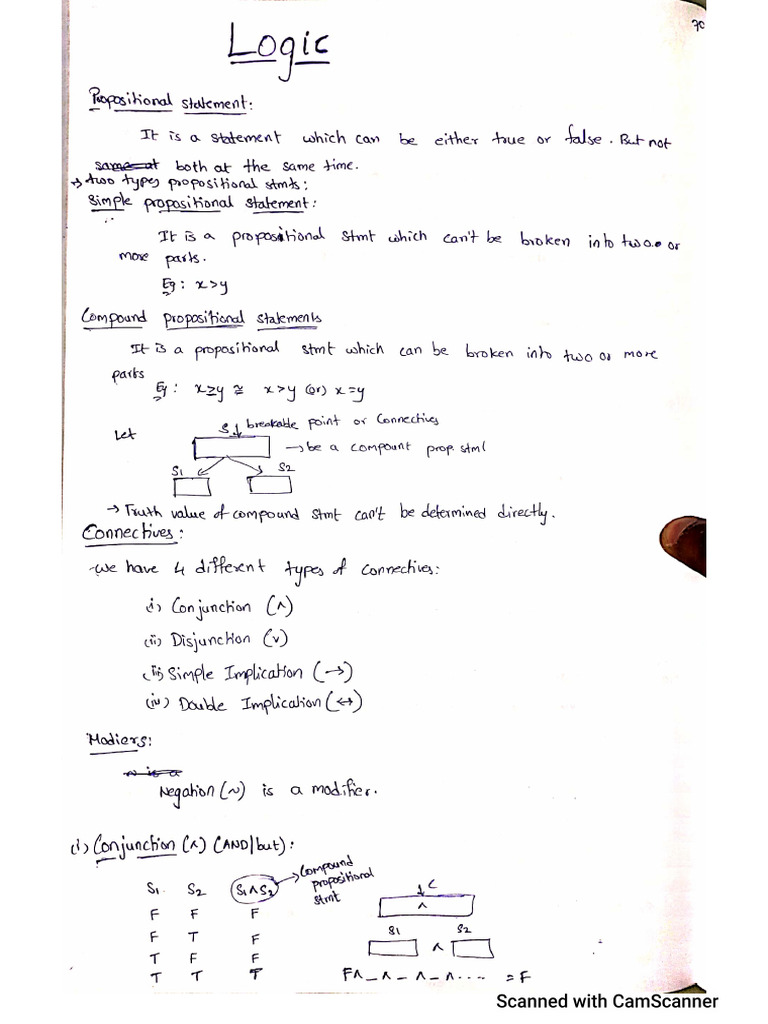 70
Logic
Propositional statement:
It is a statement which can be either true or false. But not
same at both at the same time.
→ two types propositional stmts:
Simple propositional statement:
It is a propositional stmt which can't be broken into two or
more parts.
Eg: x>y
Compound propositional statements
It is a propositional stmt which can be broken into two or more
parts
Eg: x≥y ≅ x>y (or) x=y
Let
S ↓ breakable point or Connectives
→ be a compount prop. stml
S1 S2
→ Truth value of compound stmt can't be determined directly.
Connectives:
-we have 4 different types of connectives:
(i) Conjunction (∧)
(ii) Disjunction (∨)
(iii) Simple Implication (→)
(iv) Double Implication (↔)
Modiers:
~ is a
Negation (~) is a modifier.
(i) Conjunction (∧) (AND/but):
S1 S2 (S1∧S2) → Compound
propositional
stmt
F F F
F T F
T F F
T T T
↓ C
∧
S1 S2
∧
F∧_∧_∧_∧.... = F
Scanned with CamScanner